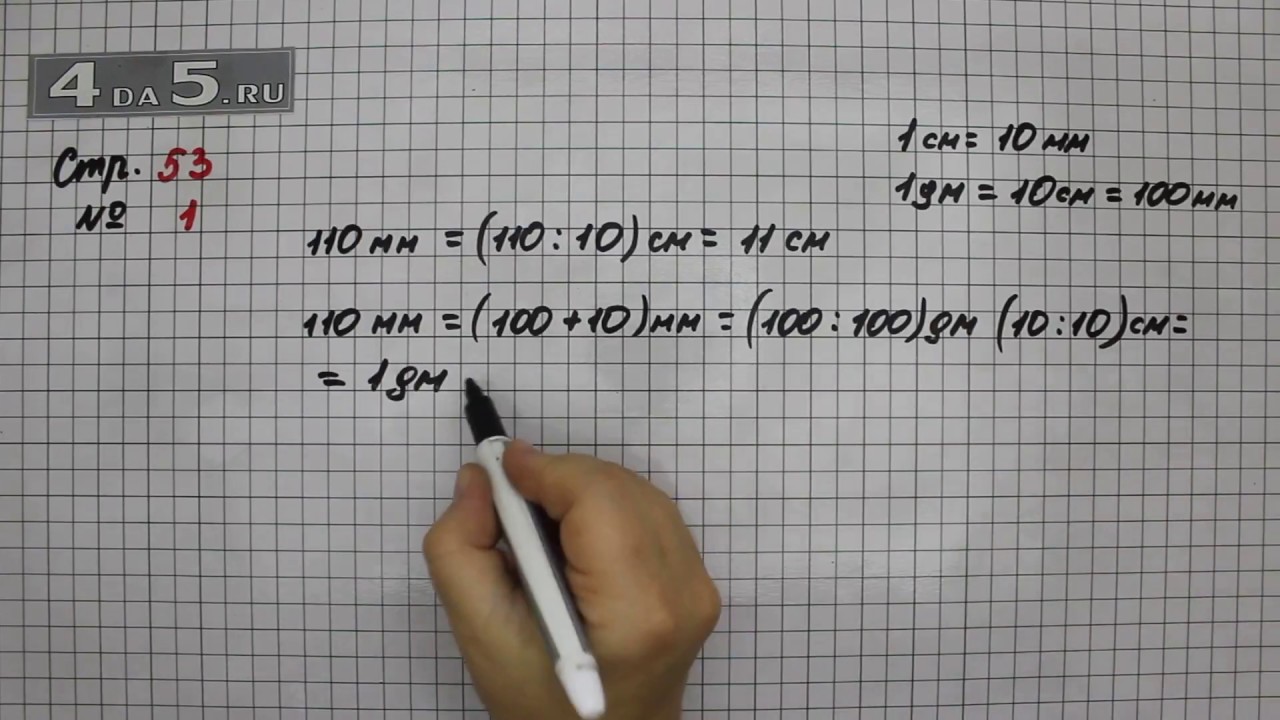 4DA5.RU
Стр. 53
№ 1
1 см = 10 мм
1 дм = 10 см = 100 мм
110 мм = (110 : 10) см = 11 см
110 мм = (100 + 10) мм = (100 : 100) дм (10 : 10) см =
= 1 дм